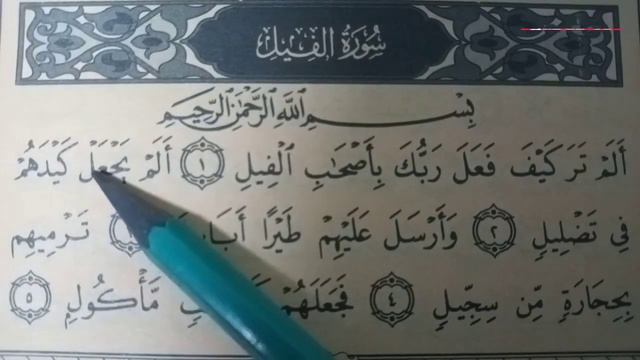 سُورَةُ الفِيلِ
بِسْمِ ٱللَّهِ ٱلرَّحْمَٰنِ ٱلرَّحِيمِ
أَلَمْ تَرَ كَيْفَ فَعَلَ رَبُّكَ بِأَصْحَٰبِ ٱلْفِيلِ ١ أَلَمْ يَجْعَلْ كَيْدَهُمْ
فِي تَضْلِيلٍ ٢ وَأَرْسَلَ عَلَيْهِمْ طَيْرًا تَرْمِيهِم
بِحِجَارَةٍ مِّن سِجِّيلٍ ٤ فَجَعَلَهُمْ مَّأْكُولٍ ٥